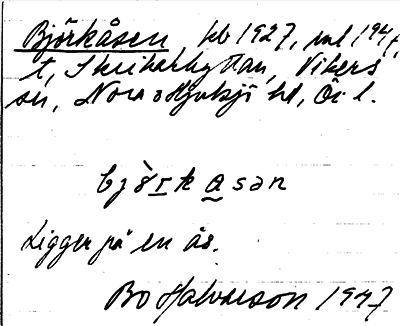 Björkåsen kb 1927, ml 1947,
t, Skrikarhyttan, Vikers
sn, Nora o Hjulsjö hd, Ör l.
bjö̀rkåsən
Ligger på en ås.
Bo Halvarson 1947